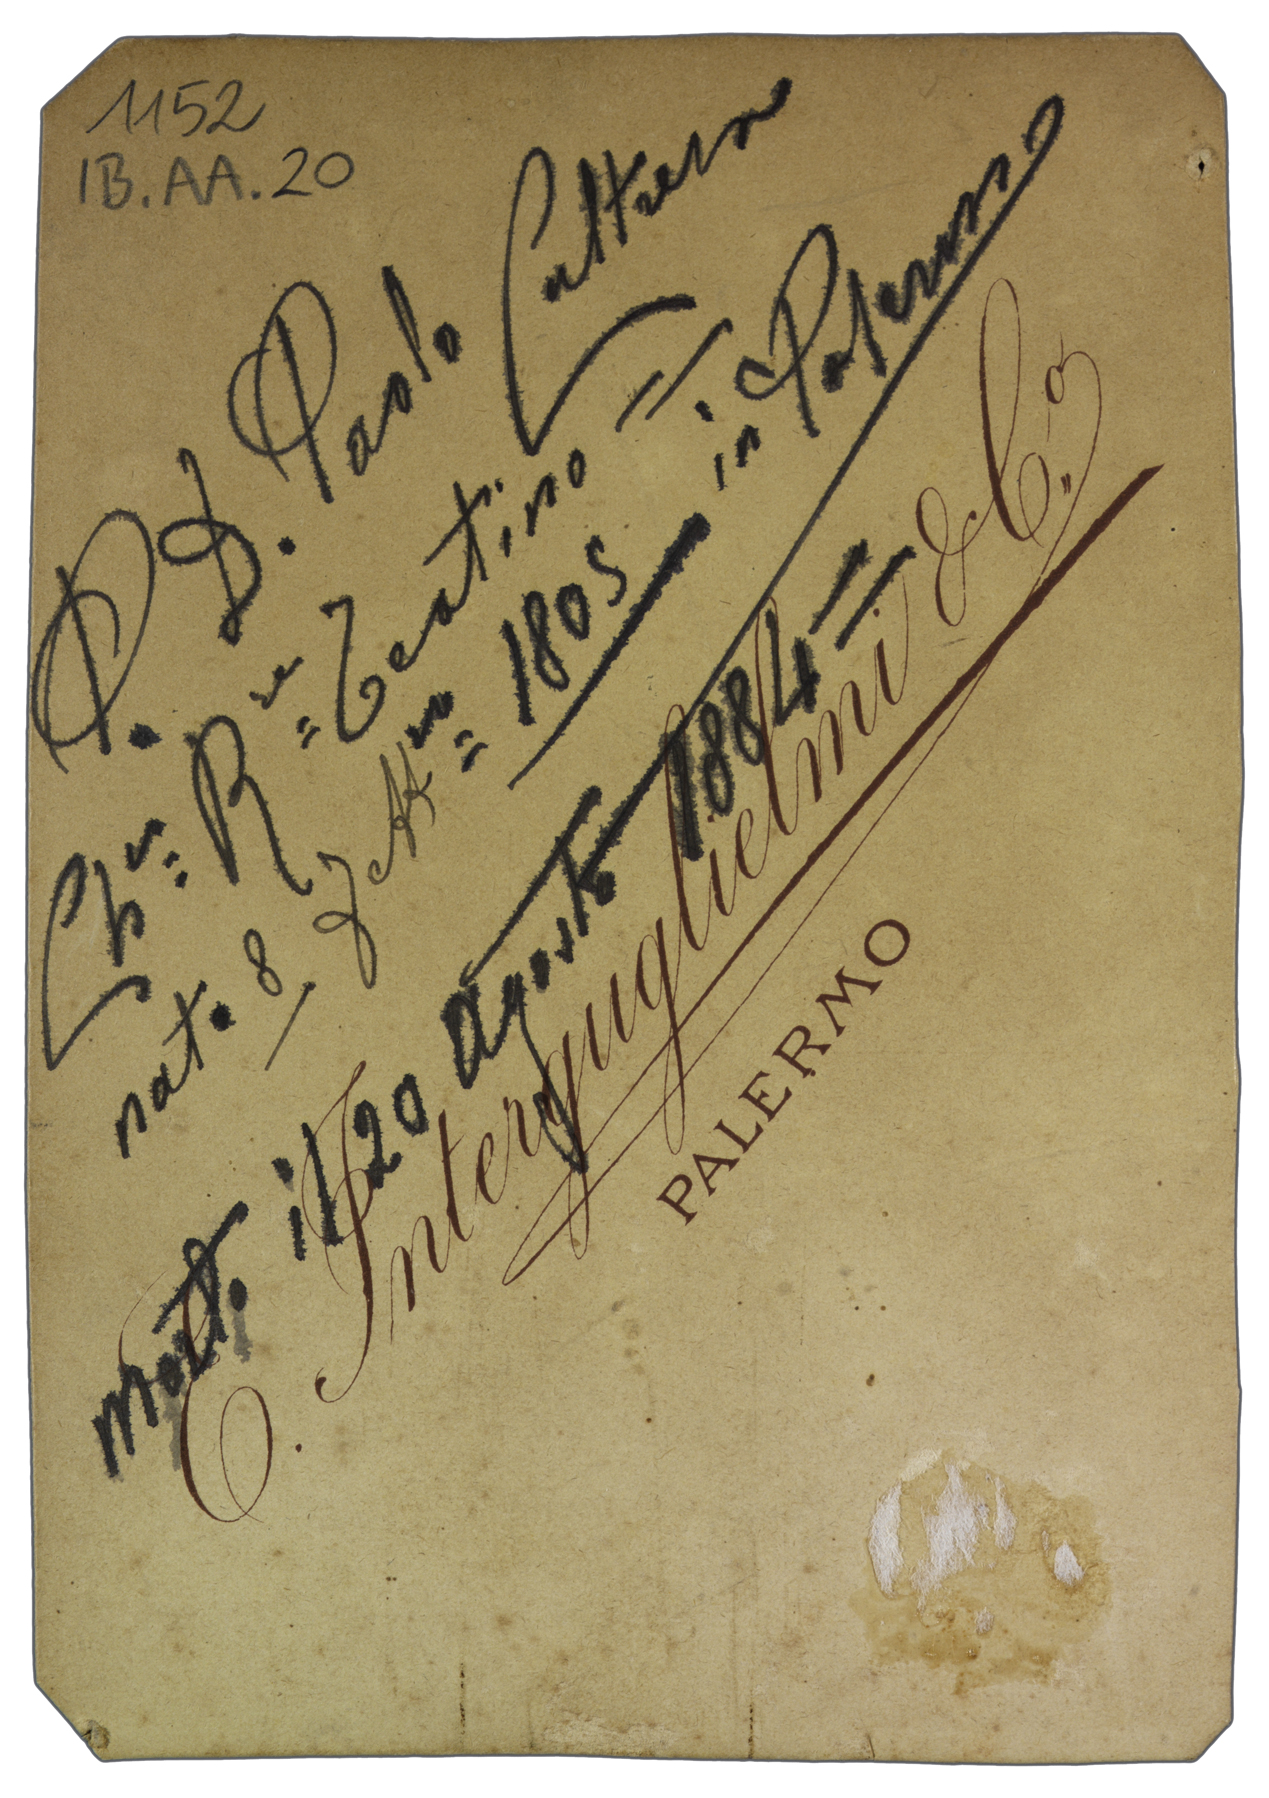 1152
IB.AA.20
P. D. Paolo Cultrera
Ch.co R.re Teatino =
nat. 8 7bre 1805 in Palermo
mort. il 20 agosto 1884 =
E. Interguglielmi & C.o
PALERMO